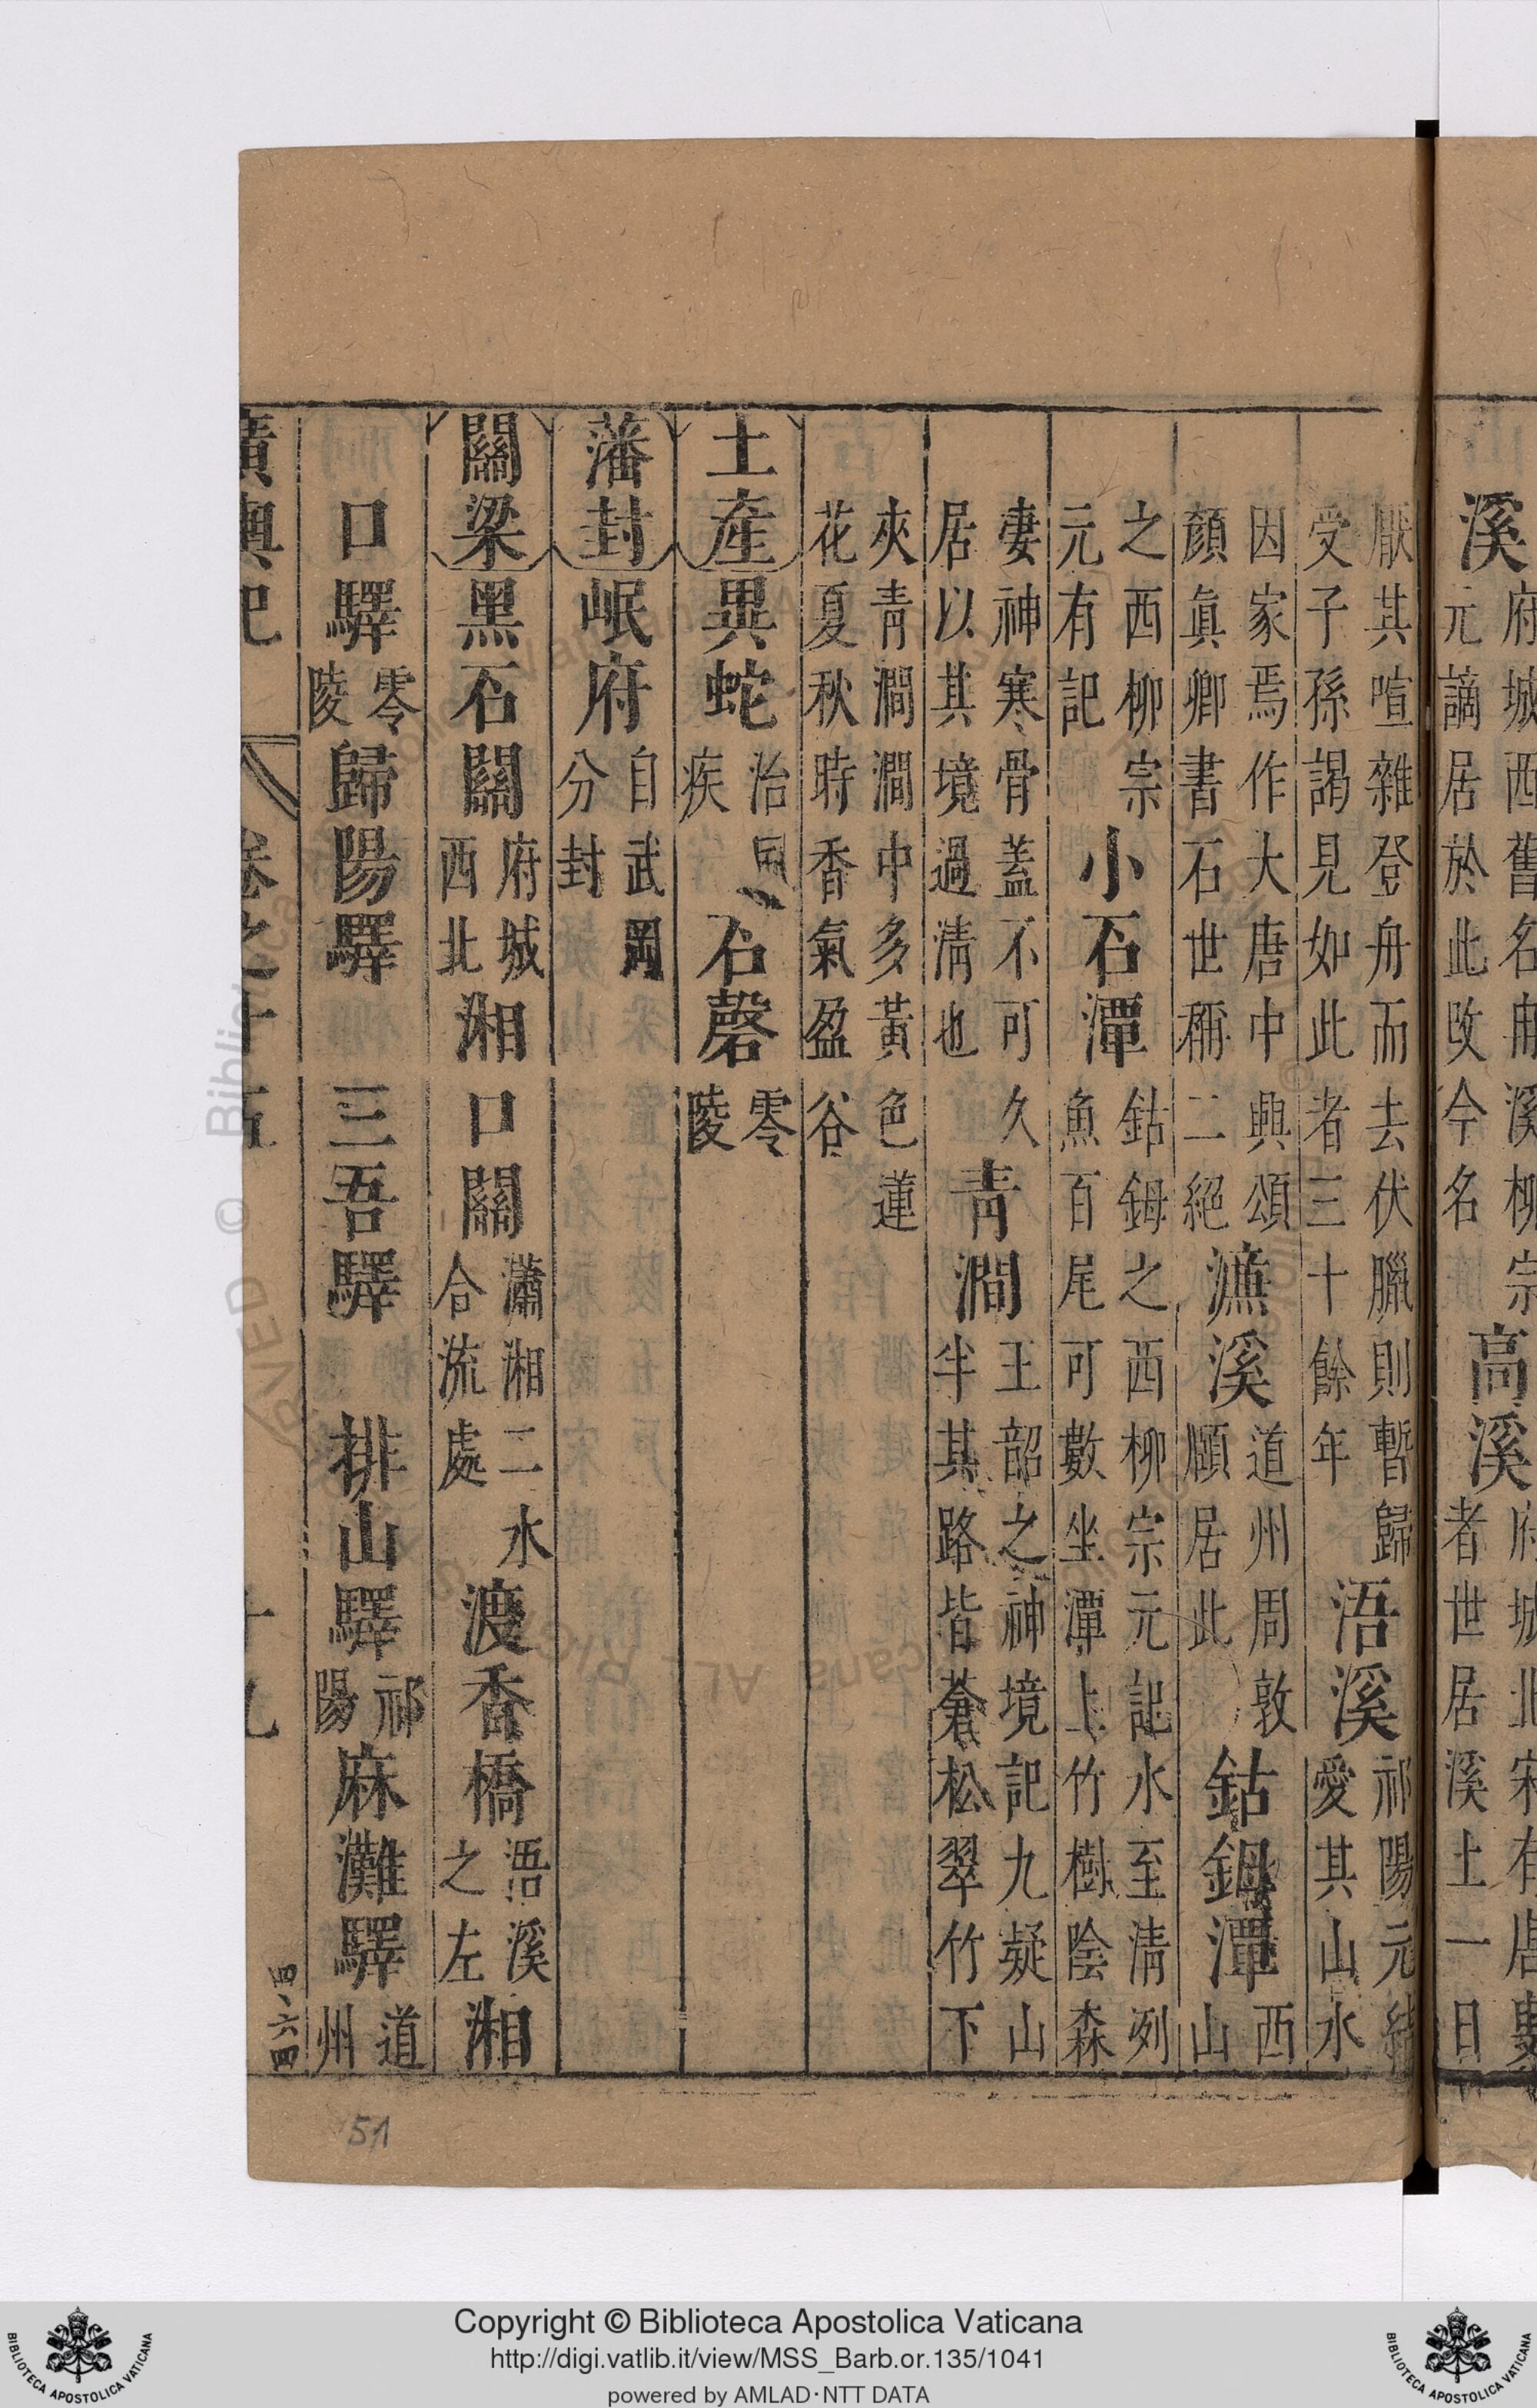 溪府城西舊名冉溪柳宗
元謫居於此改今名高溪府城北宋有唐叟
者世居溪上一日
厭其喧雜登舟而去伏臘則暫歸
受子孫謁見如此者三十餘年浯溪祁陽元結
愛其山水
因家焉作大唐中興頌
顏眞卿書石世稱二絕濂溪道州周敦
頤居此鈷鉧潭西
山
之西柳宗
元有記小石潭鈷鉧之西柳宗元記水至清冽
魚百尾可數坐潭上竹樹陰森
凄神寒骨蓋不可久
居以其境過清也青澗王韶之神境記九疑山
半其路皆蒼松翠竹下
夾青澗澗中多黃色蓮
花夏秋時香氣盈谷
土產異蛇治風
疾石磬零
陵
藩封岷府自武岡
分封
關梁黑石關府城
西北湘口關瀟湘二水
合流處渡香橋浯溪
之左湘
口驛零
陵歸陽驛 三吾驛 排山驛祁
陽麻灘驛道
州
廣輿記 卷之十五
四、六四
51
Copyright © Biblioteca Apostolica Vaticana
http://digi.vatlib.it/view/MSS_Barb.or.135/1041
powered by AMLAD·NTT DATA
BIBLIOTECA APOSTOLICA VATICANA
BIBLIOTECA APOSTOLICA VATICANA